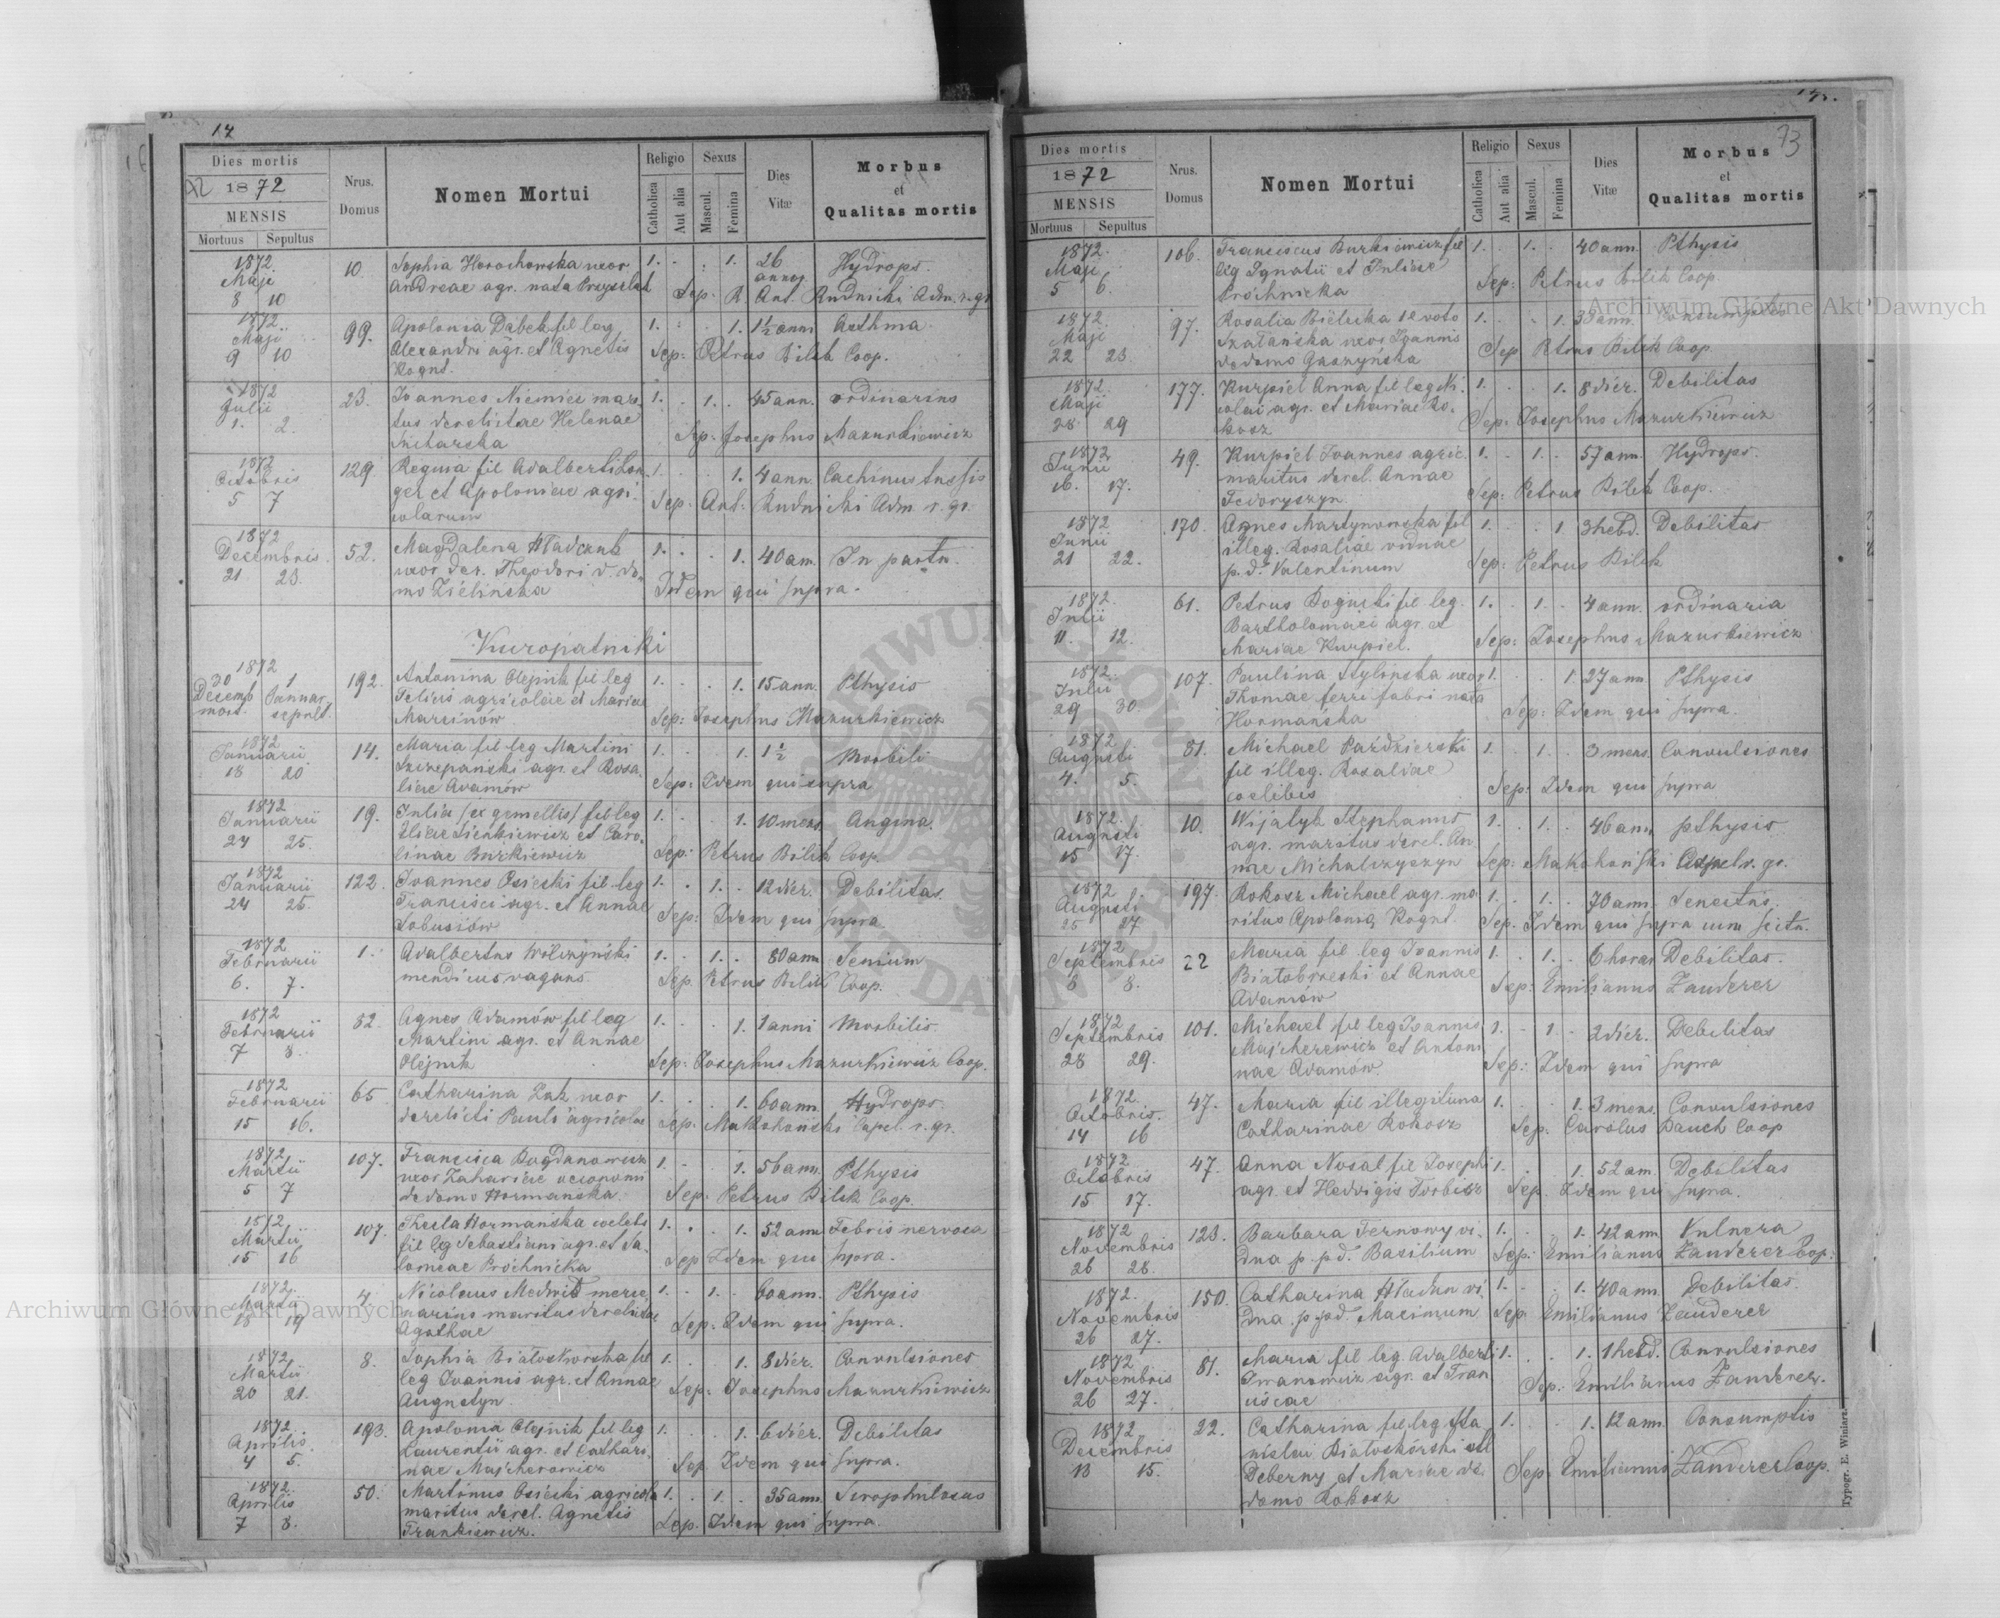 14
Dies mortis
1872
MENSIS
Mortuus Sepultus
Nrus. Domus
Nomen Mortui
Religio
Catholica
Aut alia
Sexus
Mascul.
Femina
Dies Vitæ
Morbus
et
Qualitas mortis
1872 Maji 8 10
10.
Sophia Horochowska uxor
Andreae agr. nata
1. 1. 26 annor Hydrops.
Sep: R. Ant. Rudnicki Adm. r. gr.
1872 Maji 9 10
99.
Apolonia Dąbek fil leg
Alexandri agr. et Agnetis
Kognt.
1. 1. 1½ anni Asthma
Sep: Petrus Bilek Coop.
1872 Julii 1. 2.
23.
Joannes Niemiec mari-
tus derelictae Helenae
1. 1. 45 ann. ordinarius
Sep: Josephus Mazurkiewicz
1872 Octobris 5 7
129.
Regina fil Adalberti
et Apoloniae agri-
colarum
1. 1. 4 ann. Cachinus tussis
Sep: Ant: Rudnicki Adm r. gr.
1872 Decembris 21 23.
52.
Magdalena Hładczuk
uxor der. Theodori d. do-
mo Zielińska
1. 1. 40 am. In partu.
Idem qui supra.
Kuropatniki
1872 30 Decemb mort. 1 Januar sepult.
192.
Antonina Olejnik fil leg
Felicis agricolae et Mariae
Marcinów
1. 1. 15 ann. Pthysis
Sep: Josephus Mazurkiewicz
1872 Januarii 18 20.
14.
Maria fil leg Martini
Szczepański agr. et Rosa-
liae Adamów
1. 1. 1½ Morbili
Sep: Idem qui supra
1872 Januarii 24 25.
19.
Julia (ex gemellis) fil leg
Eliae Sienkiewicz et Caro-
linae Burkiewicz
1. 1. 10 mens. Angina.
Sep: Petrus Bilek Coop.
1872 Januarii 24 25.
122.
Joannes Osiecki fil leg
Francisci agr. et Annae
Łobusiów
1. 1. 12 dier. Debilitas.
Sep: Idem qui supra
1872 Februarii 6. 7.
1.
Adalbertus Wilczyński
mendicus vagans
1. 1. 80 ann Senium
Sep. Petrus Bilek Coop.
1872 Februarii 7 8.
82.
Agnes Adamów fil leg
Martini agr. et Annae
Olejnik
1. 1. 1 anni Morbilis.
Sep: Josephus Mazurkiewicz Coop.
1872 Februarii 15 16.
65.
Catharina Żuk uxor
derelicti Pauli agricolae
1. 1. 60 ann. Hydrops.
Sep. Makohoński Capel. r. gr.
1872 Martii 5 7
107.
Francisca Bogdanowicz
uxor Zahariae oeconomi
de domo Hormańska.
1. 1. 56 ann. Pthysis
Sep: Petrus Bilek Coop.
1872 Martii 15 16
107.
Thecla Hormańska coelebs
fil leg Sebastiani agr. et Sa-
lomeae Próchnicka
1. 1. 52 ann Febris nervosa
Sep Idem qui supra.
1872 Martii 18 19
4.
Nicolaus Medwid merce-
narius maritus derelictae
Agathae
1. 1. 60 ann. Pthysis
Sep. Idem qui supra.
1872 Martii 20 21.
8.
Sophia Białoskorska fil
leg Joannis agr. et Annae
Augustyn
1. 1. 8 dier. Convulsiones
Sep: Josephus Mazurkiewicz
1872. Aprilis 4 5.
193.
Apolonia Olejnik fil leg
Laurentii agr. et Cathari-
nae Majcherowicz
1. 1. 6 dier. Debilitas
Sep Idem qui supra.
1872. Aprilis 7 8.
50.
Martinus Osiecki agricola
maritus derel. Agnetis
Frankiewicz.
1. 1. 35 ann. Scrophulosus
Sep. Idem qui supra.
73
Dies mortis
1872
MENSIS
Mortuus Sepultus
Nrus. Domus
Nomen Mortui
Religio
Catholica
Aut alia
Sexus
Mascul.
Femina
Dies Vitæ
Morbus
et
Qualitas mortis
1872. Maji 5 6.
106.
Franciscus Burkiewicz fil
leg Ignatii et Juliae
Próchnicka
1. 1. 40 ann. Pthysis
Sep: Petrus Bilek Coop.
1872 Maji 22 23.
97.
Rosalia Bielecka 1e voto
Szatańska uxor Joannis
de domo Gaszyńska
1. 1. 35 ann. Consumptio
Sep Petrus Bilek Coop
1872. Maji 28 29
177.
Kurpiel Anna fil leg Ni-
colai agr. et Mariae Ro-
kosz
1. 1. 8 dier. Debilitas
Sep: Josephus Mazurkiewicz
1872 Junii 16. 17.
49.
Kurpiel Joannes agric.
maritus derel. Annae
Fedoryszyn
1. 1. 57 ann. Hydrops.
Sep: Petrus Bilek Coop.
1872 Junii 21 22.
170.
Agnes Martynowska fil
illeg. Rosaliae viduae
p. d. Valentinum
1. 1. 3 hebd. Debilitas
Sep: Petrus Bilek
1872 Julii 11. 12.
61.
Petrus Rogucki fil leg.
Bartholomaei agr. et
Mariae Kurpiel.
1. 1. 4 ann. ordinaria
Sep: Josephus Mazurkiewicz
1872. Julii 29 30.
107.
Paulina Stylinska uxor
Thomae ferri fabri nata
Hormańska
1. 1. 27 ann Pthysis
Sep: Idem qui supra.
1872 Augusti 4. 5.
81.
Michael Paździerski
fil illeg. Rosaliae
coelibis
1. 1. 3 mens. Convulsiones
Sep: Idem qui supra
1872. Augusti 15 17.
10.
Wijatyk Stephanus
agr. maritus derel. An-
nae Michalczyszyn
1. 1. 46 ann pthysis
Sep: Makohoński Capel r. gr.
1872 Augusti 25 27
197.
Rokosz Michael agr. ma-
ritus Apolonia Kognt.
1. 1. 70 ann. Senectus.
Sep. Idem qui supra cum scitu.
1872 Septembris 6 8.
22
Maria fil leg Joannis
Białobrzeski et Annae
Adamów
1. 1. 6 horas Debilitas.
Sep: Emilianus Zauderer
1872 Septembris 28 29.
101.
Michael fil leg Joannis
Majcherewicz et Antoni-
nae Adamów
1. 1. 2 dier. Debilitas
Sep: Idem qui supra
1872 Octobris. 14 16
47.
Maria fil illegitima
Catharinae Rokosz
1. 1. 3 mens. Convulsiones
Sep: Carolus Dauch Coop
1872 Octobris 15 17.
47.
Anna Nosal fil Josephi
agr. et Hedvigis Torbicz
1. 1. 52 am. Debilitas
Sep. Idem qui supra.
1872 Novembris 26 28.
123.
Barbara Fernowy vi-
dua p. p. d. Basilium
1. 1. 42 ann Vulnera
Sep: Emilianus Zauderer Coop:
1872. Novembris 26 27.
150.
Catharina Hładun vi-
dua p. p. d. Maximum
1. 1. 40 ann. Debilitas.
Sep: Emilianus Zauderer
1872 Novembris 26 27.
81.
Maria fil leg. Adalberti
Iwanowicz agr. et Fran-
ciscae
1. 1. 1 hebd. Convulsiones
Sep: Emilianus Zauderer.
1872 Decembris 13 15.
22.
Catharina fil leg Sta-
nislai Białoskórski
Deberny et Mariae de
domo Rokosz
1. 1. 12 ann. Consumptio
Sep: Emilianus Zauderer Coop.
Typogr. E. Winiarz.
Archiwum Główne Akt Dawnych
Archiwum Główne Akt Dawnych